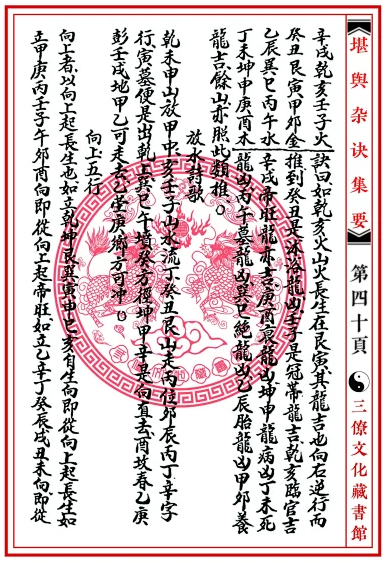 堪舆杂诀集要
第四十頁
三僚文化藏書館
辛戌乾亥壬子火 訣曰如乾亥火山火長生在艮寅其龍吉也向右逆行而
癸丑艮寅甲卯金 推到癸丑是沐浴龍凶壬子是冠帶龍吉乾亥臨官吉
乙辰巽巳丙午水 辛戌帝旺龍亦吉庚酉衰龍凶坤申龍病凶丁未死
丁未坤申庚酉木 龍凶丙午墓龍凶巽巳絶龍凶乙辰胎龍凶甲卯養
龍吉餘山亦照此類推
放水詩歌
乾未申山放甲中亥壬子山水流丁癸丑艮山未丙位卯辰丙丁辛字
行寅墓便是出乾上巽巳午墳癸方徑坤甲辛是向直去酉坟春乙庚
彭壬戌地甲乙可走去乙坐庚鄉方可冲
向上五行
向上者以向上起長生也如立乾坤艮巽寅申巳亥自生向即從向上起長生如
立甲庚丙壬子午卯酉向即從向上起帝旺如立乙辛丁癸辰戌丑未向即從